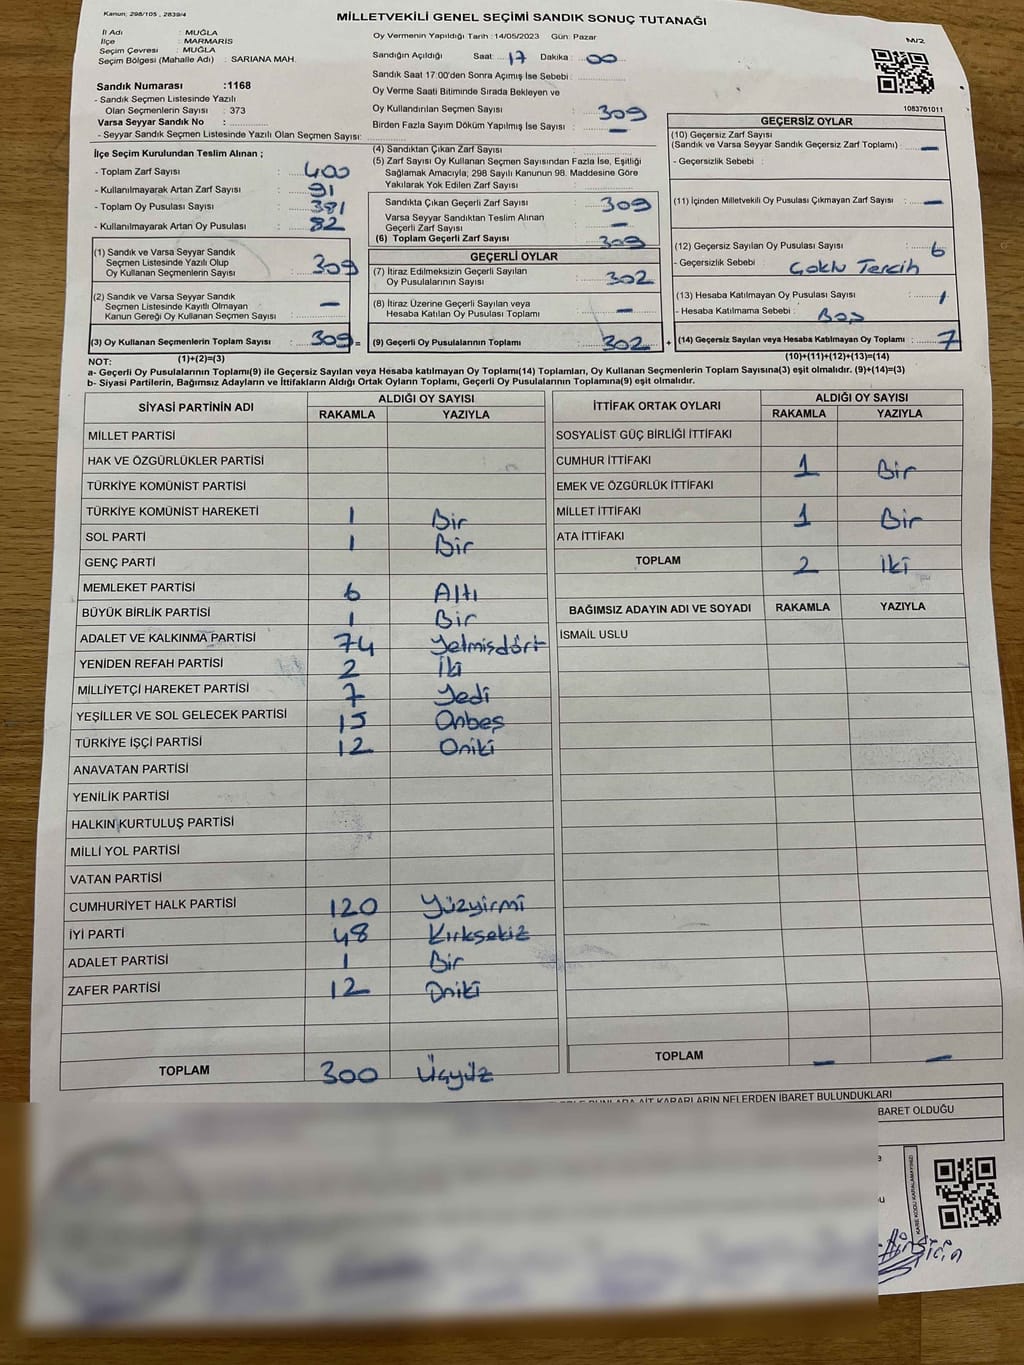 Kanun; 298/105 , 2839/4
MİLLETVEKİLİ GENEL SEÇİMİ SANDIK SONUÇ TUTANAĞI
M/2
İl Adı : MUĞLA
İlçe : MARMARİS
Seçim Çevresi : MUĞLA
Seçim Bölgesi (Mahalle Adı) : SARIANA MAH.
Sandık Numarası :1168
- Sandık Seçmen Listesinde Yazılı
Olan Seçmenlerin Sayısı : 373
Varsa Seyyar Sandık No :
- Seyyar Sandık Seçmen Listesinde Yazılı Olan Seçmen Sayısı:
Oy Vermenin Yapıldığı Tarih : 14/05/2023 Gün: Pazar
Sandığın Açıldığı Saat: 17 Dakika : 00
Sandık Saat 17:00'den Sonra Açımış İse Sebebi :
Oy Verme Saati Bitiminde Sırada Bekleyen ve
Oy Kullandırılan Seçmen Sayısı : 309
Birden Fazla Sayım Döküm Yapılmış İse Sayısı : —
1083761011
İlçe Seçim Kurulundan Teslim Alınan ;
- Toplam Zarf Sayısı : 400
- Kullanılmayarak Artan Zarf Sayısı : 91
- Toplam Oy Pusulası Sayısı : 381
- Kullanılmayarak Artan Oy Pusulası : 82
(1) Sandık ve Varsa Seyyar Sandık
Seçmen Listesinde Yazılı Olup
Oy Kullanan Seçmenlerin Sayısı : 309
(2) Sandık ve Varsa Seyyar Sandık
Seçmen Listesinde Kayıtlı Olmayan
Kanun Gereği Oy Kullanan Seçmen Sayısı : —
(3) Oy Kullanan Seçmenlerin Toplam Sayısı : 309 =
(4) Sandıktan Çıkan Zarf Sayısı :
(5) Zarf Sayısı Oy Kullanan Seçmen Sayısından Fazla İse, Eşitliği
Sağlamak Amacıyla; 298 Sayılı Kanunun 98. Maddesine Göre
Yakılarak Yok Edilen Zarf Sayısı :
Sandıkta Çıkan Geçerli Zarf Sayısı : 309
Varsa Seyyar Sandıktan Teslim Alınan
Geçerli Zarf Sayısı : —
(6) Toplam Geçerli Zarf Sayısı : 309
GEÇERLİ OYLAR
(7) İtiraz Edilmeksizin Geçerli Sayılan
Oy Pusulalarının Sayısı : 302
(8) İtiraz Üzerine Geçerli Sayılan veya
Hesaba Katılan Oy Pusulası Toplamı : —
(9) Geçerli Oy Pusulalarının Toplamı : 302 +
GEÇERSİZ OYLAR
(10) Geçersiz Zarf Sayısı
(Sandık ve Varsa Seyyar Sandık Geçersiz Zarf Toplamı) : —
- Geçersizlik Sebebi :
(11) İçinden Milletvekili Oy Pusulası Çıkmayan Zarf Sayısı : —
(12) Geçersiz Sayılan Oy Pusulası Sayısı : 6
- Geçersizlik Sebebi : Çoklu Tercih
(13) Hesaba Katılmayan Oy Pusulası Sayısı : 1
- Hesaba Katılmama Sebebi : Boş
(14) Geçersiz Sayılan veya Hesaba Katılmayan Oy Toplamı : 7
NOT: (1)+(2)=(3) (10)+(11)+(12)+(13)=(14)
a- Geçerli Oy Pusulalarının Toplamı(9) ile Geçersiz Sayılan veya Hesaba Katılmayan Oy Toplamı(14) Toplamları, Oy Kullanan Seçmenlerin Toplam Sayısına(3) eşit olmalıdır. (9)+(14)=(3)
b- Siyasi Partilerin, Bağımsız Adayların ve İttifakların Aldığı Ortak Oyların Toplamı, Geçerli Oy Pusulalarının Toplamına(9) eşit olmalıdır.
SİYASİ PARTİNİN ADI ALDIĞI OY SAYISI
RAKAMLA YAZIYLA
MİLLET PARTİSİ
HAK VE ÖZGÜRLÜKLER PARTİSİ
TÜRKİYE KOMÜNİST PARTİSİ
TÜRKİYE KOMÜNİST HAREKETİ 1 Bir
SOL PARTİ 1 Bir
GENÇ PARTİ
MEMLEKET PARTİSİ 6 Altı
BÜYÜK BİRLİK PARTİSİ 1 Bir
ADALET VE KALKINMA PARTİSİ 74 Yetmişdört
YENİDEN REFAH PARTİSİ 2 İki
MİLLİYETÇİ HAREKET PARTİSİ 7 Yedi
YEŞİLLER VE SOL GELECEK PARTİSİ 15 Onbeş
TÜRKİYE İŞÇİ PARTİSİ 12 Oniki
ANAVATAN PARTİSİ
YENİLİK PARTİSİ
HALKIN KURTULUŞ PARTİSİ
MİLLİ YOL PARTİSİ
VATAN PARTİSİ
CUMHURİYET HALK PARTİSİ 120 Yüzyirmi
İYİ PARTİ 48 Kırksekiz
ADALET PARTİSİ 1 Bir
ZAFER PARTİSİ 12 Oniki
TOPLAM 300 Üçyüz
İTTİFAK ORTAK OYLARI ALDIĞI OY SAYISI
RAKAMLA YAZIYLA
SOSYALİST GÜÇ BİRLİĞİ İTTİFAKI
CUMHUR İTTİFAKI 1 Bir
EMEK VE ÖZGÜRLÜK İTTİFAKI
MİLLET İTTİFAKI 1 Bir
ATA İTTİFAKI
TOPLAM 2 İki
BAĞIMSIZ ADAYIN ADI VE SOYADI RAKAMLA YAZIYLA
İSMAİL USLU
TOPLAM — —
KARARLARIN NELERDEN İBARET BULUNDUKLARI
BARET OLDUĞU
KARE KODU KARALAMAYINIZ!